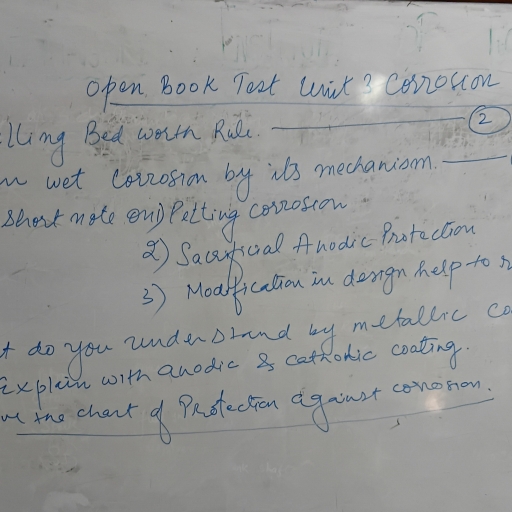 Open Book Test Unit 3 Corrosion
lling Bed worth Rule. 2
wet Corrosion by its mechanism.
Short note on 1) Petting corrosion
2) Sacrificial Anodic Protection
3) Modification in design help to
do you understand by metallic co
Explain with anodic & cathodic coating.
the chart of Protection against corrosion.